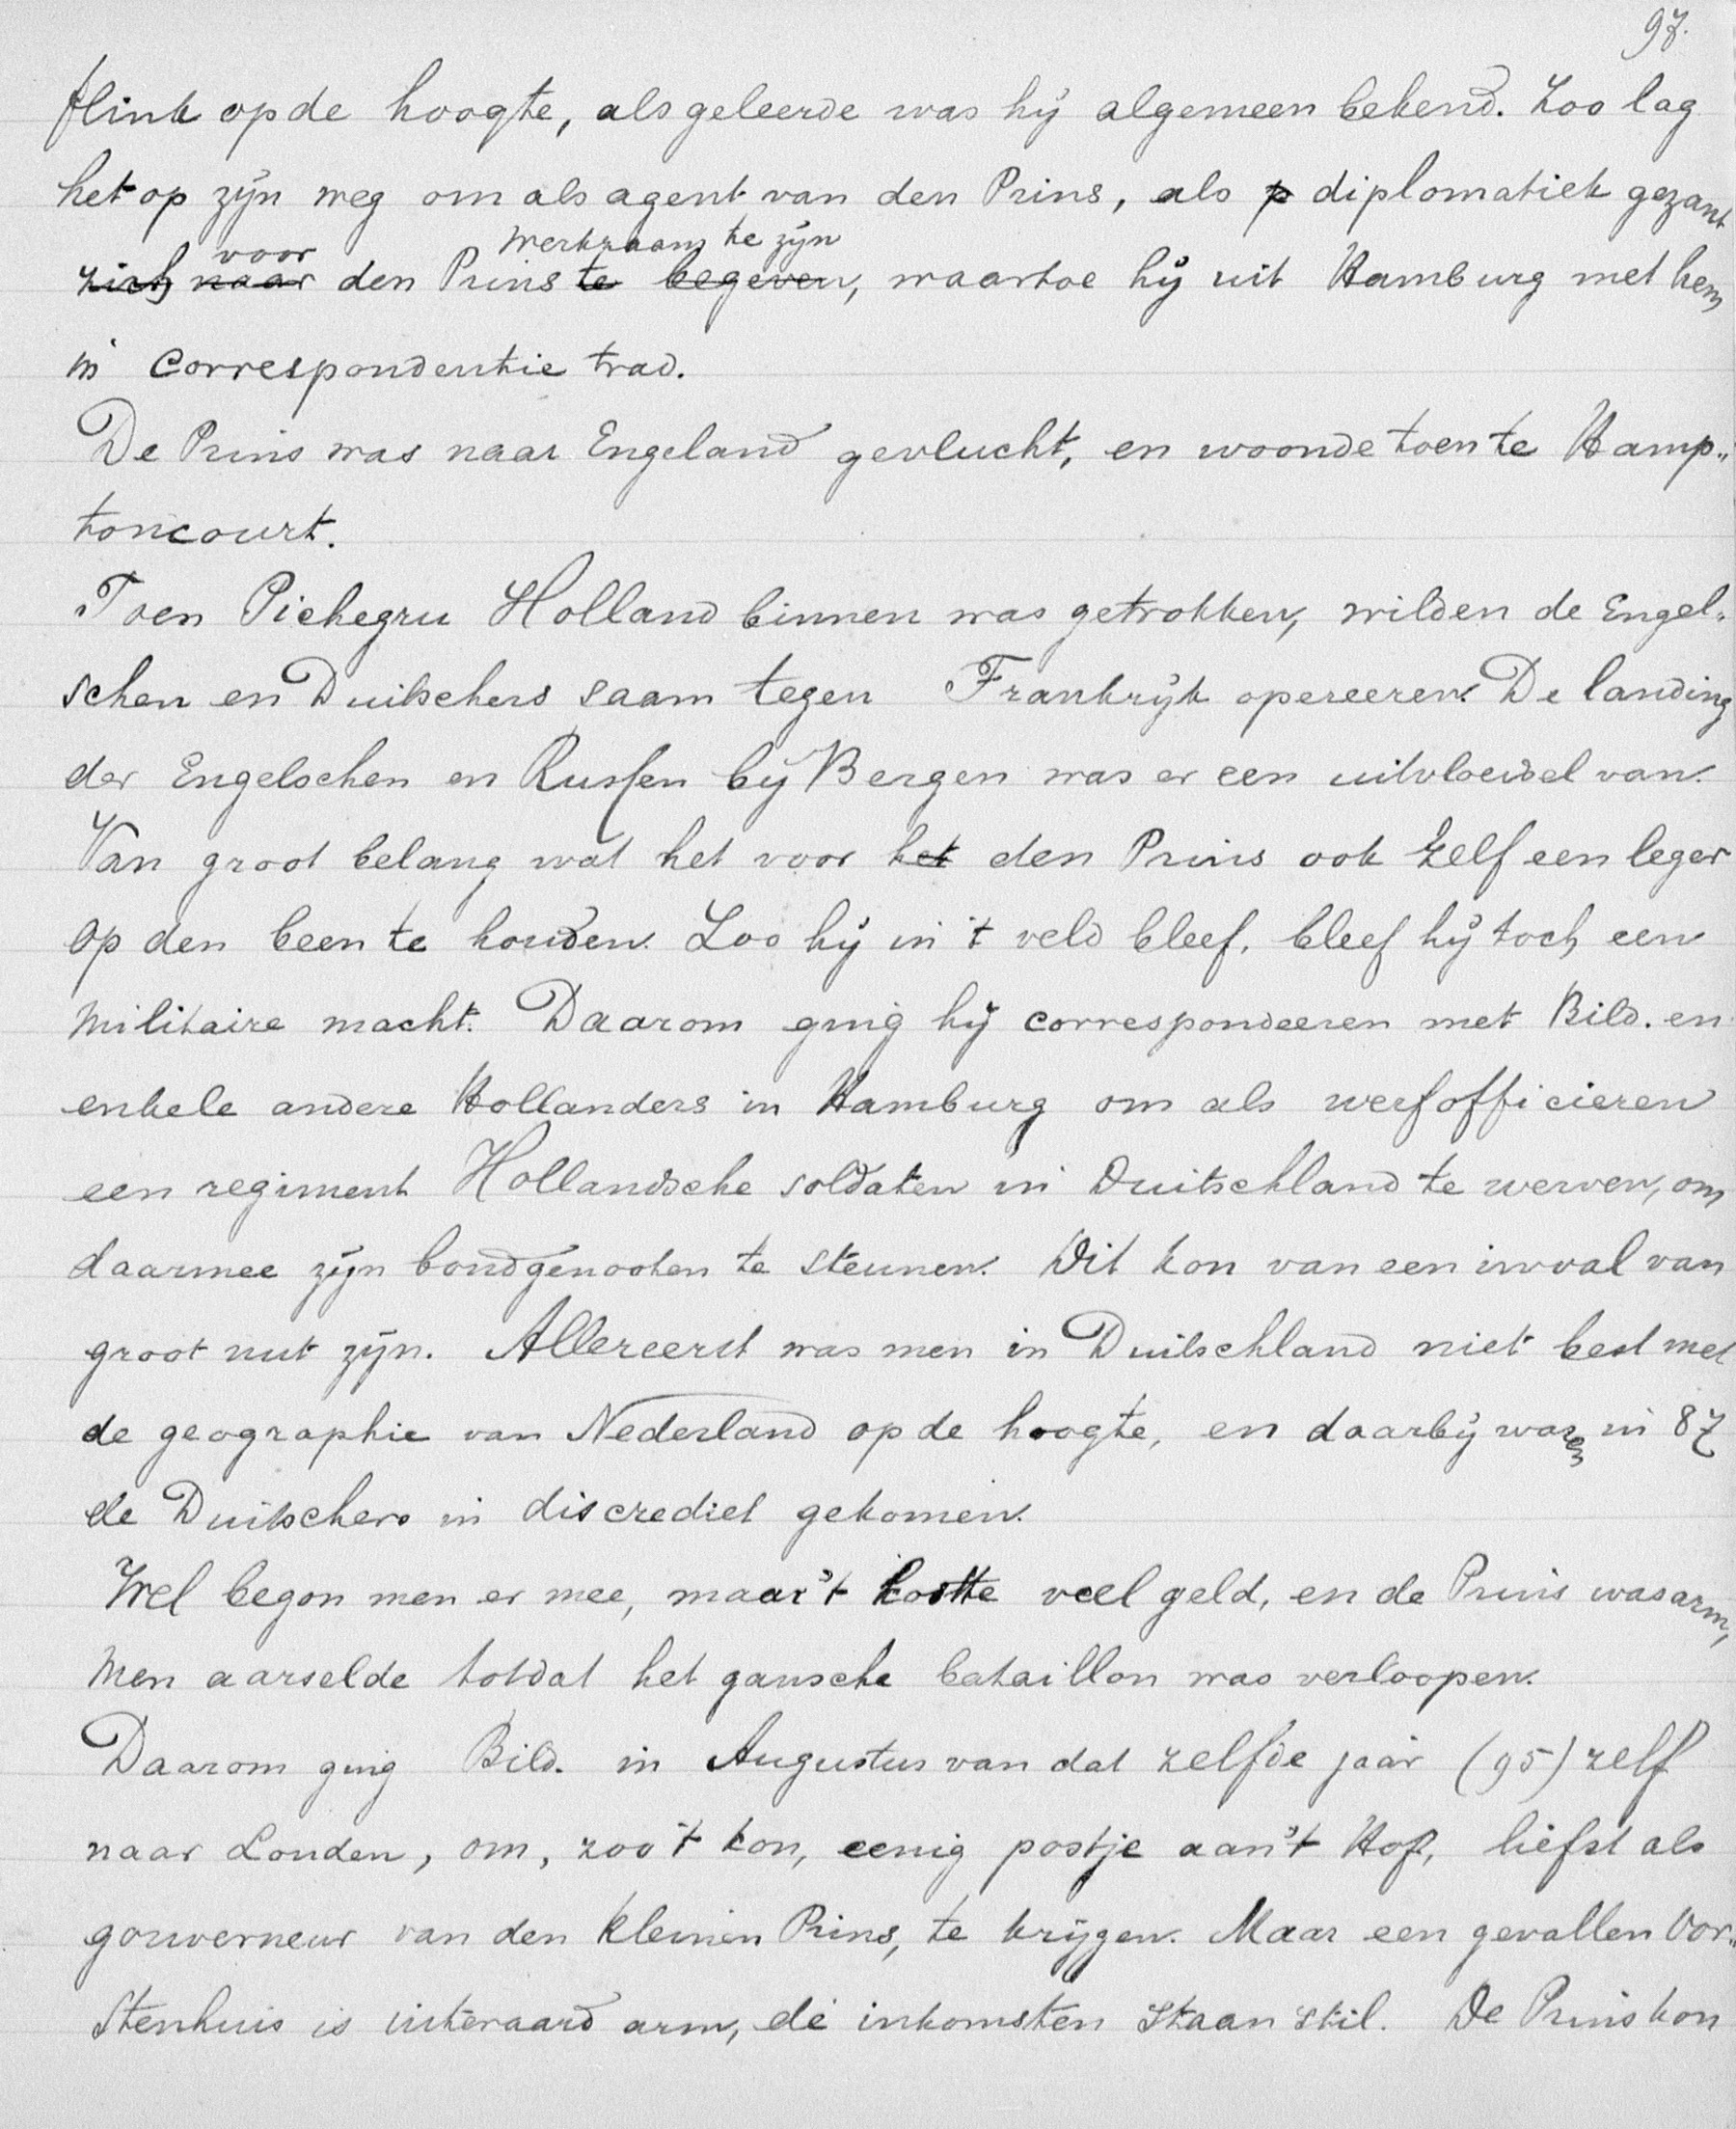 97.
flink op de hoogte, als geleerde was hij algemeen bekend. Zoo lag
het op zijn weg om als agent van den Prins, als p diplomatiek gezant
voor werkzaam te zijn
zich naar den Prins te begeven, waartoe hij uit Hamburg met hem
in correspondentie trad.
De Prins was naar Engeland gevlucht, en woonde toen te Hamp„
toncourt.
Toen Pichegru Holland binnen was getrokken, wilden de Engel„
schen en Duitschers saam tegen Frankrijk opereeren. De landing
der Engelschen en Russen bij Bergen was er een uitvloeisel van.
Van groot belang wat het voor het den Prins ook zelf een leger
op den been te houden. Zoo hij in 't veld bleef, bleef hij toch een
militaire macht. Daarom ging hij correspondeeren met Bild. en
enkele andere Hollanders in Hamburg om als werfofficieren
een regiment Hollandsche soldaten in Duitschland te werven, om
daarmee zijn bondgenooten te steunen. Dit kon van een inval van
groot nut zijn. Allereerst was men in Duitschland niet best met
de geographie van Nederland op de hoogte, en daarbij waren in 87
de Duitschers in discrediet gekomen.
Wel begon men er mee, maar 't kostte veel geld, en de Prins was arm,
men aarselde totdat het gansche bataillon was verloopen.
Daarom ging Bild. in Augustus van dat zelfde jaar (95) zelf
naar Londen, om, zoo 't kon, eenig postje aan 't Hof, liefst als
gouverneur van den kleinen Prins, te krijgen. Maar een gevallen Vor„
stenhuis is uiteraard arm, de inkomsten staan stil. De Prins kon